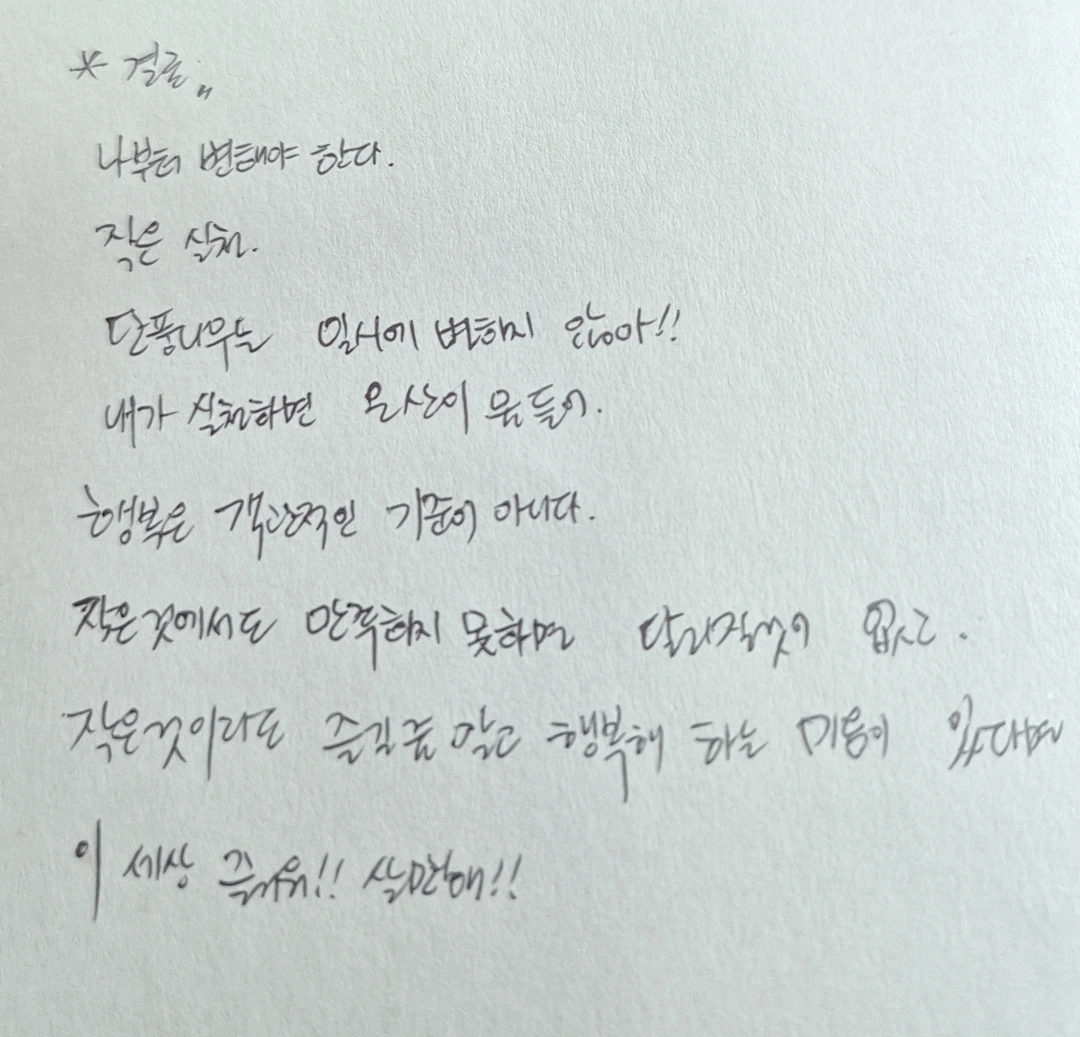 * 결론 〃
나부터 변해야 한다.
작은 실천.
단풍나무도 일시에 변하지 않아!!
내가 실천하면 온산이 물들어.
행복은 객관적인 기준이 아니다.
작은것에서도 만족하지 못하면 달라질것이 없고.
작은것이라도 즐길줄 알고 행복해 하는 마음이 있다면
이 세상 즐거워!! 살만해!!